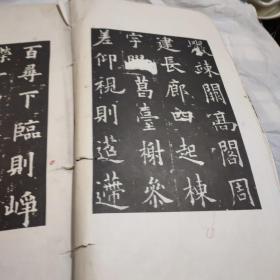 巖竦闕高閣周
建長廊四起棟
宇膠葛臺榭參
差仰視則迢遰
百尋下臨則崢